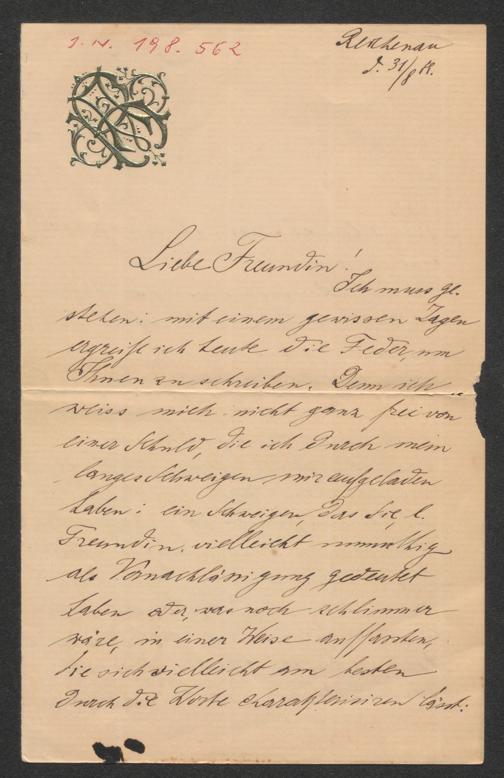 I. N. 198.562
Reichenau
d. 31/8 
Liebe Freundin!
Ich muss ge-
stehen: mit einem gewissen Zagen
ergreife ich heute die Feder, um
Ihnen zu schreiben. Denn ich
weiss mich nicht ganz frei von
einer Schuld, die ich durch mein
langes Schweigen mir aufgeladen
habe: ein Schweigen, das Sie, l.
Freundin, vielleicht 
als Vernachlässigung gedeutet
haben oder, was noch schlimmer
wäre, in einer Weise auffassten,
die sich vielleicht am besten
durch die Worte charakterisiren lässt: